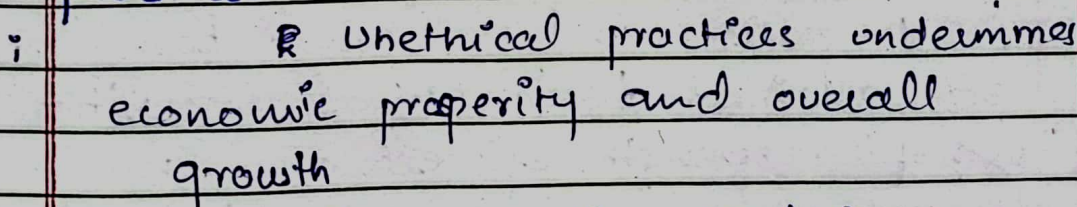 i Unethical practices undermines
economic properity and overall
growth